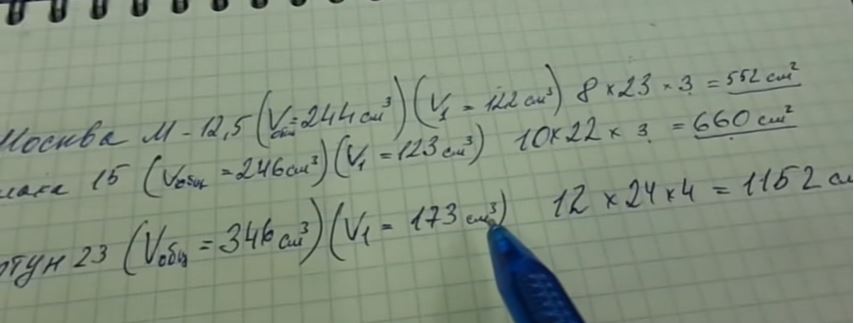 Москва М-12,5 (Vобщ=244см³)(V₁=122см³) 8×23×3=552см²
15 (Vобщ=246см³)(V₁=123см³) 10×22×3=660см²
23 (Vобщ=346см³)(V₁=173см³) 12×24×4=1152